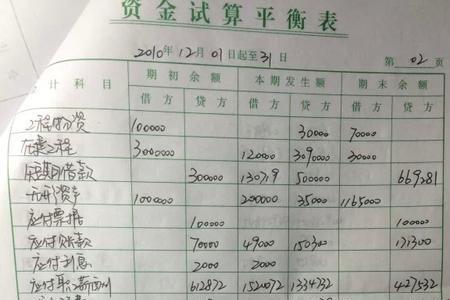 资金试算平衡表
2010年12月01日起至31日 第02页
会计科目 期初余额 本期发生额 期末余额
借方 贷方 借方 贷方 借方 贷方
工程物资 100000 30000 70000
在建工程 3000000 120000 3090000 30000
短期借款 300000 130719 500000 669281
无形资产 1000000 200000 35000 1165000
应付票据 100000 100000
应付账款 70000 49000 150300 171300
应付利息 2000 2000
应付职薪酬 612872 1520072 1334732 427532